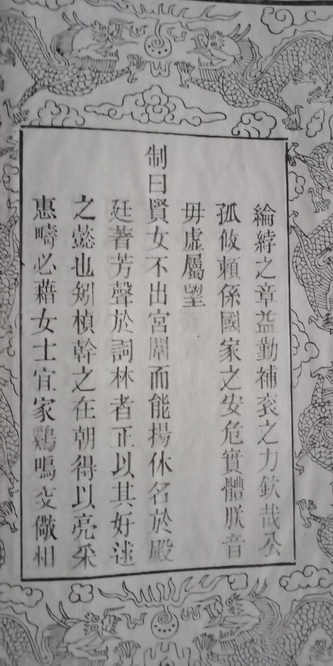 綸綍之章益勤補袞之力欽哉公
孤攸賴係國家之安危實體朕音
毋虛屬望
制曰賢女不出宮闈而能揚休名於殿
廷著芳聲於詞林者正以其好逑
之懿也矧楨幹之在朝得以亮采
惠疇必藉女士宜家鷄鳴交儆相